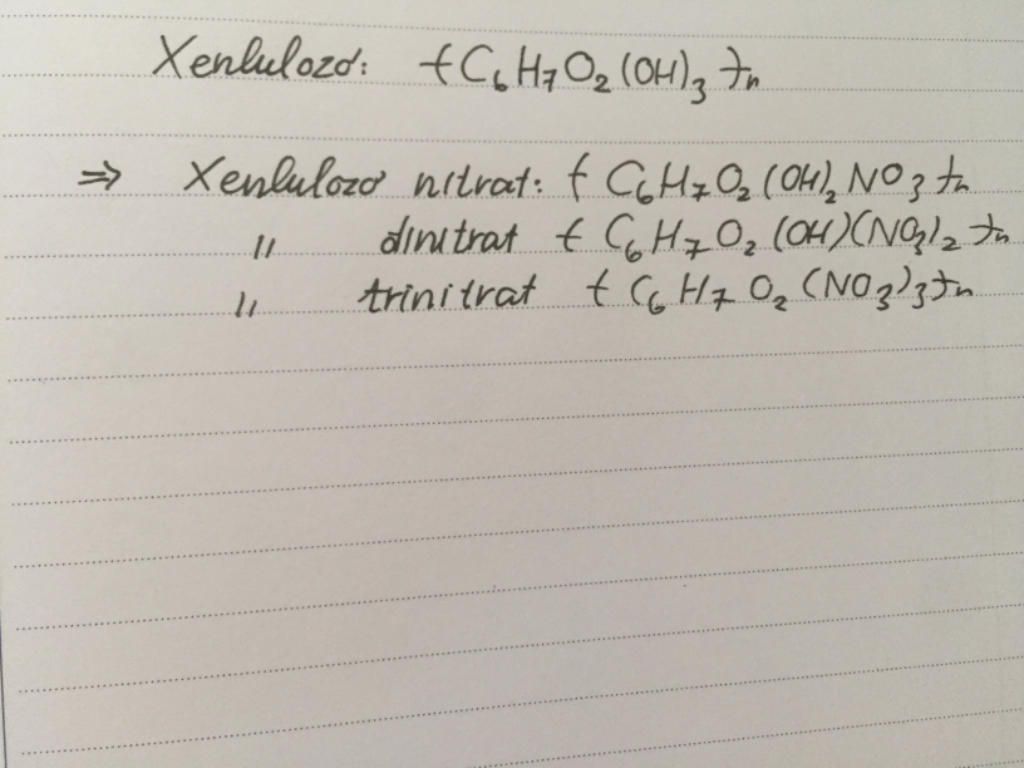 Xenlulozơ: -(C₆H₇O₂(OH)₃-)ₙ
⇒ Xenlulozơ nitrat: -(C₆H₇O₂(OH)₂NO₃-)ₙ
〃 dinitrat -(C₆H₇O₂(OH)(NO₃)₂-)ₙ
〃 trinitrat -(C₆H₇O₂(NO₃)₃-)ₙ